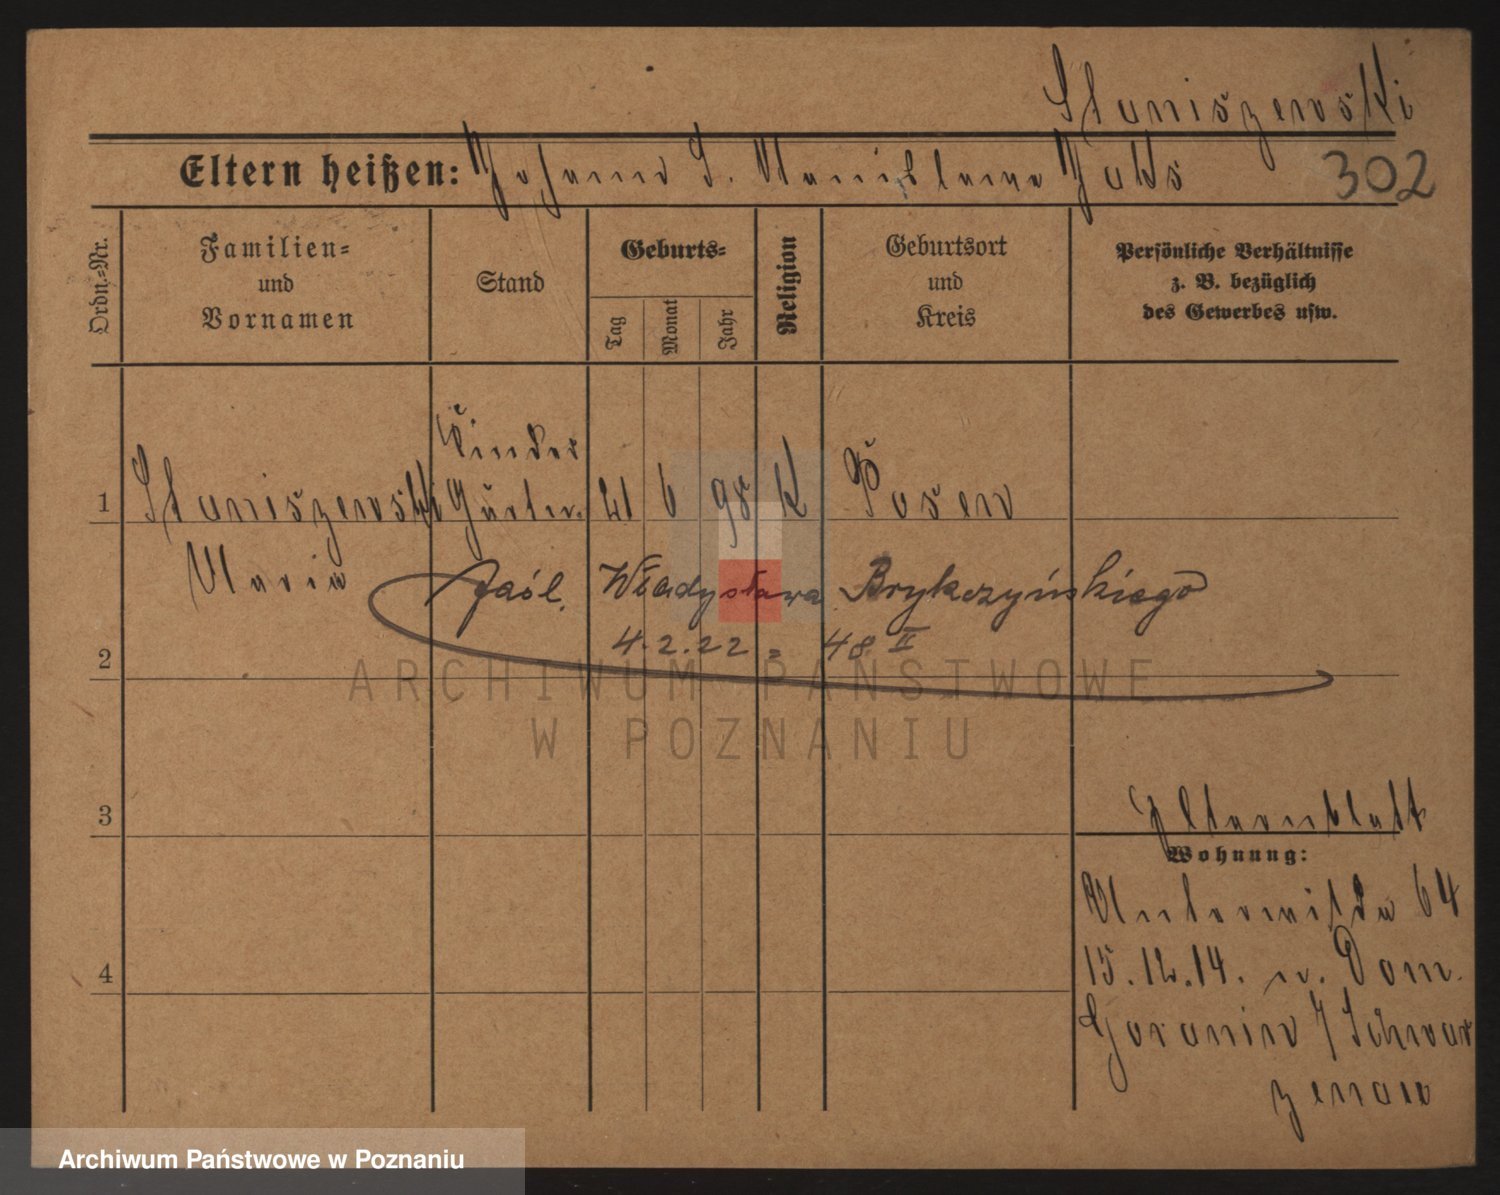 Staniszewski
Eltern heißen: Johann S. Stanislawa Jaks
302
Ordn.-Nr.
Familien-
und
Vornamen
Stand
Geburts-
Tag
Monat
Jahr
Religion
Geburtsort
und
Kreis
Persönliche Verhältnisse
z. B. bezüglich
des Gewerbes usw.
Kinder
1 Staniszewski Gärtn. 21 6 98 K Posen
Maria
zaśl. Władysława Brykczyńskiego
4.2.22 = 48 II
2
ARCHIWUM PAŃSTWOWE
W POZNANIU
3
Elternblatt
Wohnung:
Unterwilda 64
4
15.12.14. n. Dom.
Goranin / Schwar
zenau
Archiwum Państwowe w Poznaniu